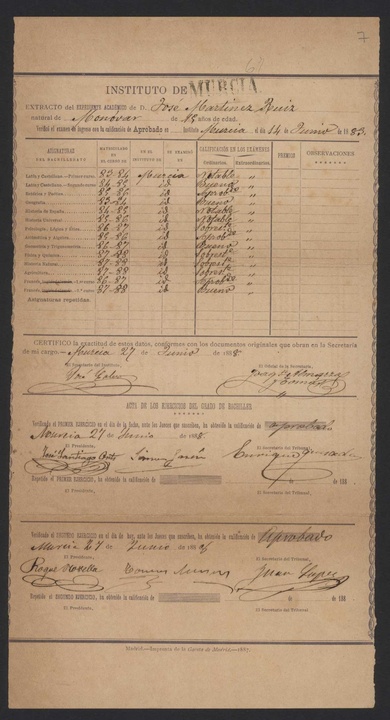 7
INSTITUTO DE MURCIA.
EXTRACTO del EXPEDIENTE ACADÉMICO de D. José Martínez Ruiz
natural de Monóvar de 15 años de edad.
Verificó el examen de ingreso con la calificación de Aprobado en Instituto Murcia el día 14 Junio 1883.
ASIGNATURAS DEL BACHILLERATO MATRICULADO EN EL CURSO DE EN EL INSTITUTO DE SE EXAMINÓ EN CALIFICACIÓN EN LOS EXÁMENES PREMIOS OBSERVACIONES
Ordinarios. Extraordinarios.
Latín y Castellano.—Primer curso. 83-84 Murcia Notable "
Latín y Castellano.—Segundo curso. 84-85 id Bueno "
Retórica y Poética. 85-86 id Aprob.do "
Geografía. 83-84 id Bueno "
Historia de España. 84-85 id Notable "
Historia Universal. 85-86 id Notable "
Psicología, Lógica y Ética. 86-87 id "
Aritmética y Álgebra. 85-86 id Aprob.do "
Geometría y Trigonometría. 86-87 id Bueno "
Física y Química. 87-88 id "
Historia Natural. 87-88 id "
Agricultura. 87-88 id "
Francés, 86-87 id Aprob.do "
Francés, 87-88 id Bueno "
Asignaturas repetidas.
CERTIFICO la exactitud de estos datos, conformes con los documentos originales que obran en la Secretaría
de mi cargo.—Murcia 27 de Junio de 1888.
El Secretario El Oficial de la Secretaría,
ACTA DE LOS EJERCICIOS DEL GRADO DE BACHILLER.
Verificado el PRIMER EJERCICIO en el día de la fecha, ante los Jueces que suscriben, ha obtenido la calificación de aprobado
Murcia 27 de Junio de 1888.
El Presidente, El Secretario del Tribunal,
José Santiago Orts Enrique
Repetido el PRIMER EJERCICIO, ha obtenido la calificación de de de 188
El Presidente, El Secretario del Tribunal,
Verificado el SEGUNDO EJERCICIO en el día de hoy, ante los Jueces que suscriben, ha obtenido la calificación de Aprobado
Murcia 27 de Junio de 1888
El Presidente, El Secretario del Tribunal,
Roque Juan López
Repetido el SEGUNDO EJERCICIO, ha obtenido la calificación de de de 188
El Presidente, El Secretario del Tribunal,
Madrid.—Imprenta de la Gaceta de Madrid.—1887.